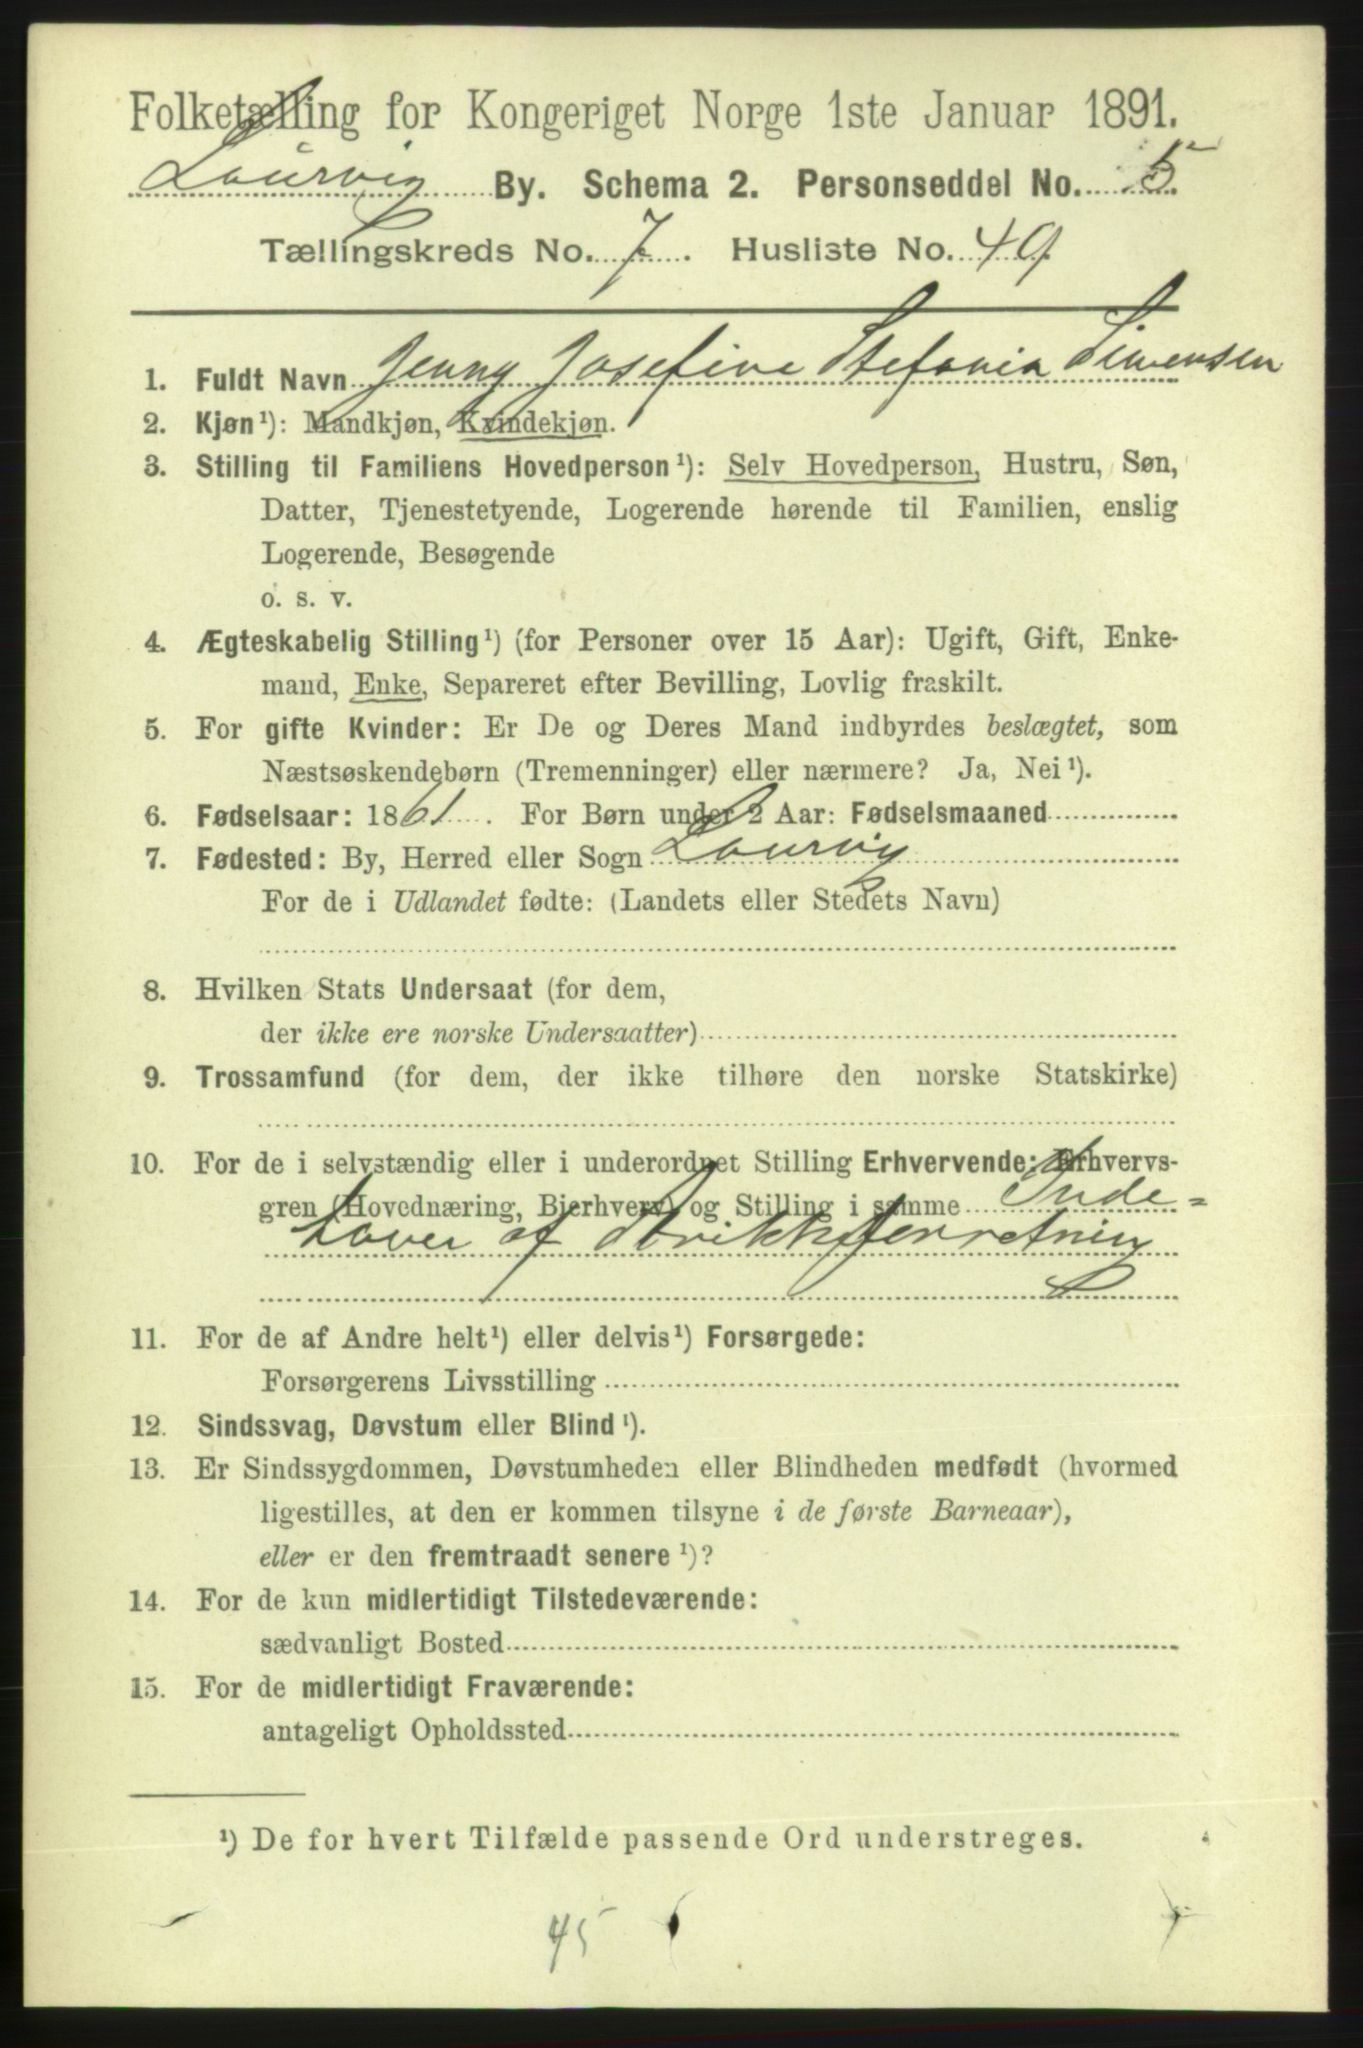 Folketælling for Kongeriget Norge 1ste Januar 1891.
Laurvig By. Schema 2. Personseddel No. 5.
Tællingskreds No. 7. Husliste No. 49.
1. Fuldt Navn Jenny Josefine Stefania Simensen
2. Kjøn¹): Mandkjøn, Kvindekjøn.
3. Stilling til Familiens Hovedperson¹): Selv Hovedperson, Hustru, Søn,
Datter, Tjenestetyende, Logerende hørende til Familien, enslig
Logerende, Besøgende
o. s. v.
4. Ægteskabelig Stilling¹) (for Personer over 15 Aar): Ugift, Gift, Enke-
mand, Enke, Separeret efter Bevilling, Lovlig fraskilt.
5. For gifte Kvinder: Er De og Deres Mand indbyrdes beslægtet, som
Næstsøskendebørn (Tremenninger) eller nærmere? Ja, Nei¹).
6. Fødselsaar: 1861. For Børn under 2 Aar: Fødselsmaaned
7. Fødested: By, Herred eller Sogn Laurvig
For de i Udlandet fødte: (Landets eller Stedets Navn)
8. Hvilken Stats Undersaat (for dem,
der ikke ere norske Undersaatter)
9. Trossamfund (for dem, der ikke tilhøre den norske Statskirke)
10. For de i selvstændig eller i underordnet Stilling Erhvervende: Erhvervs-
gren (Hovednæring, Bierhverv) og Stilling i samme Inde=
haver af Strikkeforretning
11. For de af Andre helt¹) eller delvis¹) Forsørgede:
Forsørgerens Livsstilling
12. Sindssvag, Døvstum eller Blind¹).
13. Er Sindssygdommen, Døvstumheden eller Blindheden medfødt (hvormed
ligestilles, at den er kommen tilsyne i de første Barneaar),
eller er den fremtraadt senere¹)?
14. For de kun midlertidigt Tilstedeværende:
sædvanligt Bosted
15. For de midlertidigt Fraværende:
antageligt Opholdssted
¹) De for hvert Tilfælde passende Ord understreges.
45